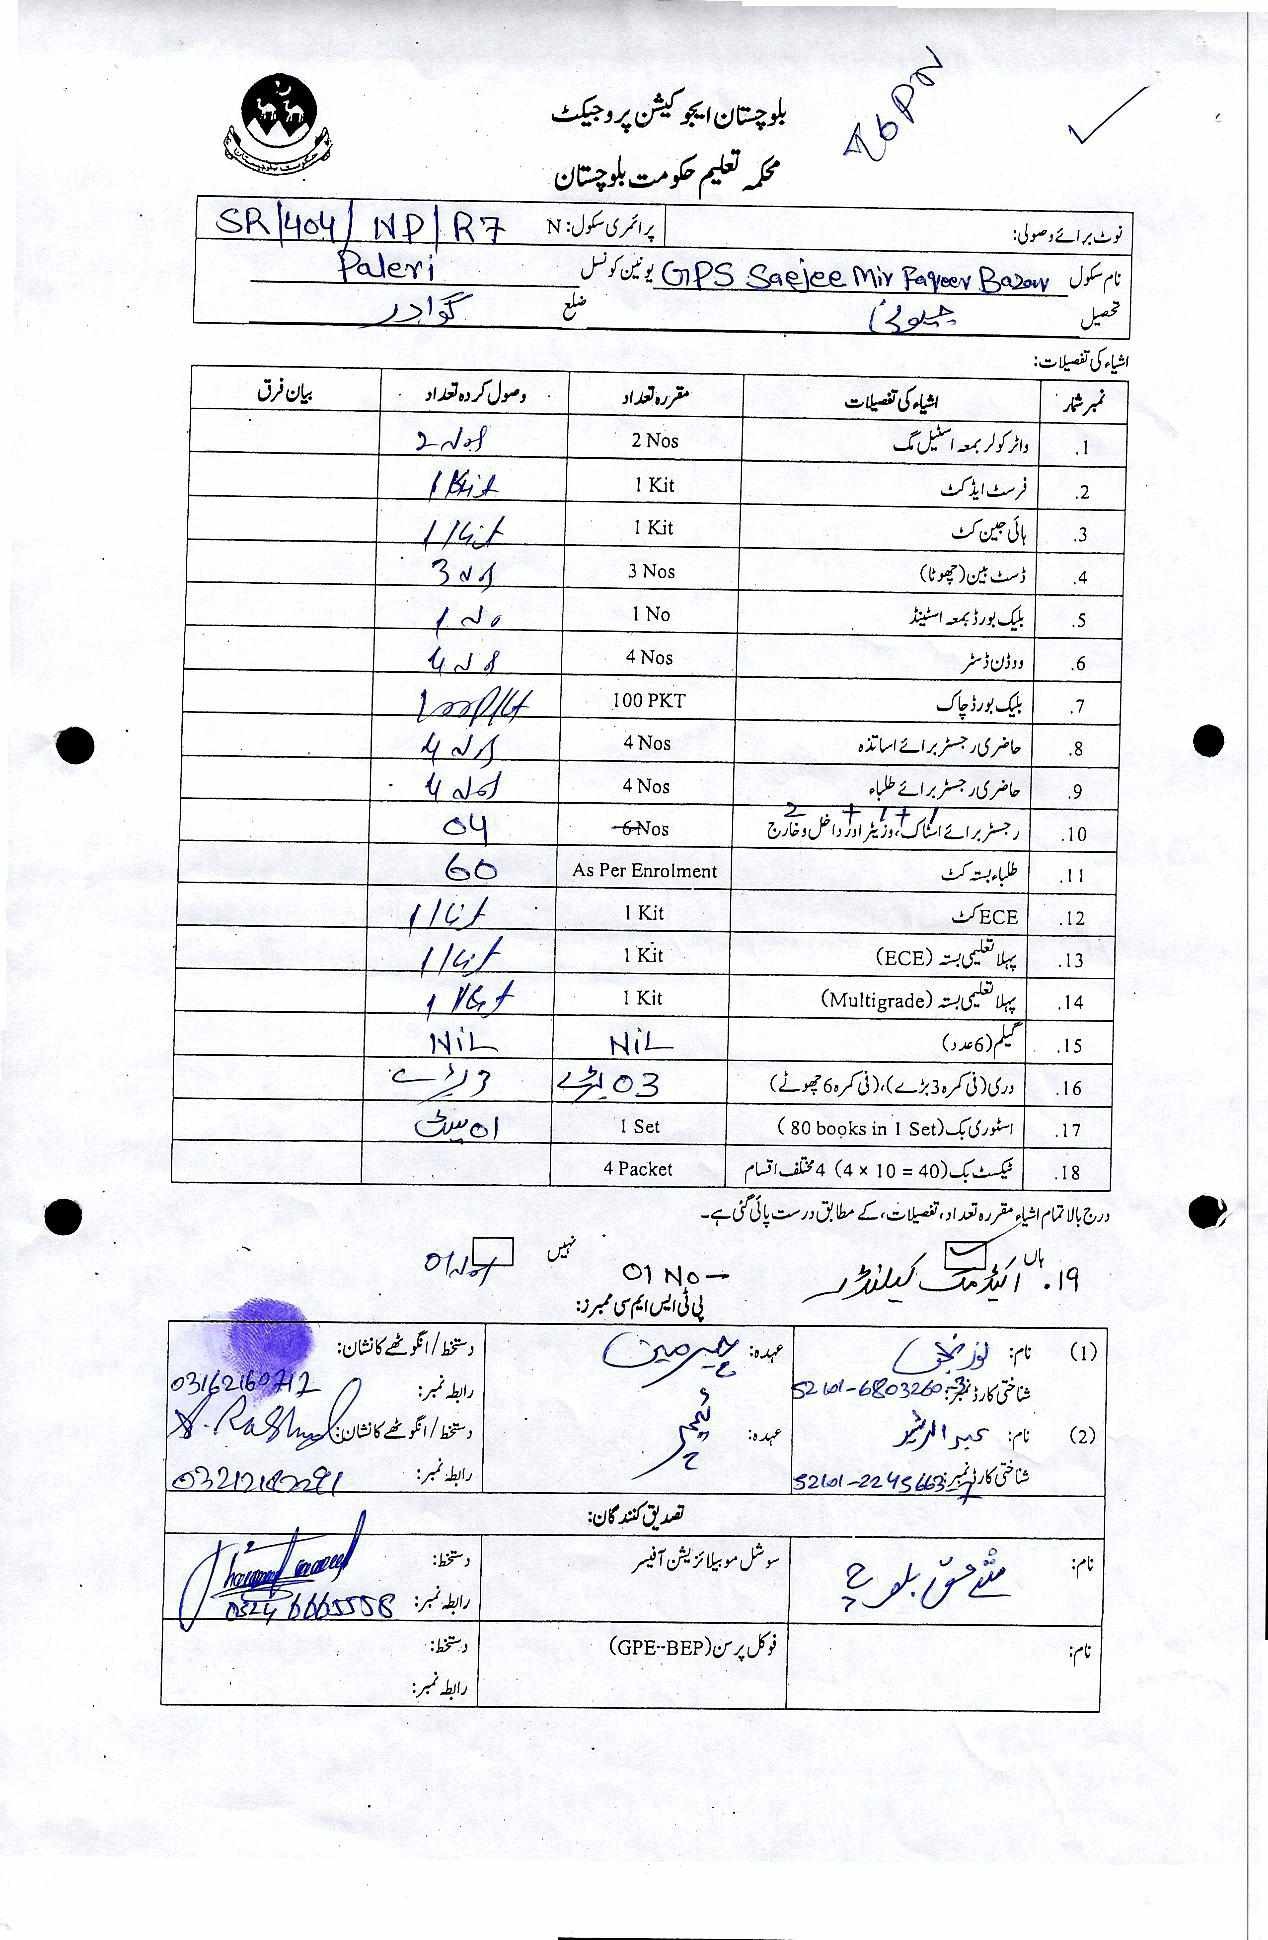 بلوچستان ایجوکیشن پروجیکٹ
محکمہ تعلیم حکومت بلوچستان
نوٹ برائے وصولی: پرائمری سکول: N SR/404/NP/R7
نام سکول GPS Saejee Mir Faqeer Bazar یونین کونسل Paleri
تحصیل جیونی ضلع گوادر
اشیاء کی تفصیلات:
نمبر شمار اشیاء کی تفصیلات مقررہ تعداد وصول کردہ تعداد بیان فرق
1. واٹر کولر بمعہ اسٹیل مگ 2 Nos 2 Nos
2. فرسٹ ایڈ کٹ 1 Kit 1 Kit
3. ہائی جین کٹ 1 Kit 1 Kit
4. ڈسٹ بین (چھوٹا) 3 Nos 3 Nos
5. بلیک بورڈ بمعہ اسٹینڈ 1 No 1 No
6. ووڈن ڈسٹر 4 Nos 4 Nos
7. بلیک بورڈ چاک 100 PKT 100 Pkt
8. حاضری رجسٹر برائے اساتذہ 4 Nos 4 Nos
9. حاضری رجسٹر برائے طلباء 4 Nos 4 Nos
2 + 1 + 1
10. رجسٹر برائے اسٹاک، وزیٹر اور داخل و خارج 6 Nos 04
11. طلباء بستہ کٹ As Per Enrolment 60
12. ECE کٹ 1 Kit 1 Kit
13. پہلا تعلیمی بستہ (ECE) 1 Kit 1 Kit
14. پہلا تعلیمی بستہ (Multigrade) 1 Kit 1 Kit
15. گلیم (6 عدد) NiL NiL
16. دری (فی کمرہ 3 بڑے)، (فی کمرہ 6 چھوٹے) 03 بڑے 3 بڑے
17. اسٹوری بک (80 books in 1 Set) 1 Set 01 سیٹ
18. ٹیکسٹ بک (4 x 10 = 40) 4 مختلف اقسام 4 Packet
درج بالا تمام اشیاء مقررہ تعداد، تفصیلات، کے مطابق درست پائی گئی ہے۔
ہاں نہیں
۱۹. اکیڈمک کیلنڈر 01 No 01 No
پی ٹی ایس ایم سی ممبرز:
(1) نام: نور بخش عہدہ: چیرمین دستخط/انگوٹھے کا نشان:
شناختی کارڈ نمبر: رابطہ نمبر: 03162160712
(2) نام: عبدالرشید عہدہ: ٹیچر دستخط/انگوٹھے کا نشان: A. Rashid
شناختی کارڈ نمبر: رابطہ نمبر:
تصدیق کنندگان:
نام: بلوچ سوشل موبیلائزیشن آفیسر دستخط:
رابطہ نمبر: 0324 6665558
نام: فوکل پرسن (GPE-BEP) دستخط:
رابطہ نمبر: